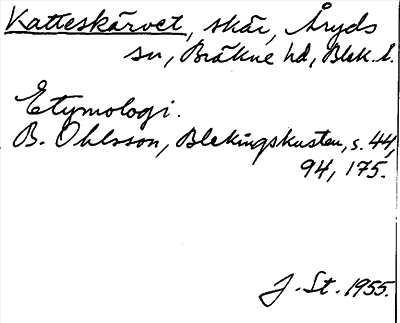 Katteskärvet, skär, Åryds
sn, Bräkne hd, Blek. l.
Etymologi.
B. Ohlsson, Blekingskusten, s. 44,
94, 175.
J. St. 1955.